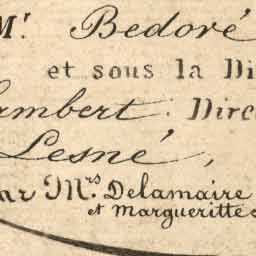 Mr. Bedoré
et sous la Di
ambert. Direc
Lesné,
ar Mrs. Delamaire
et Margueritte